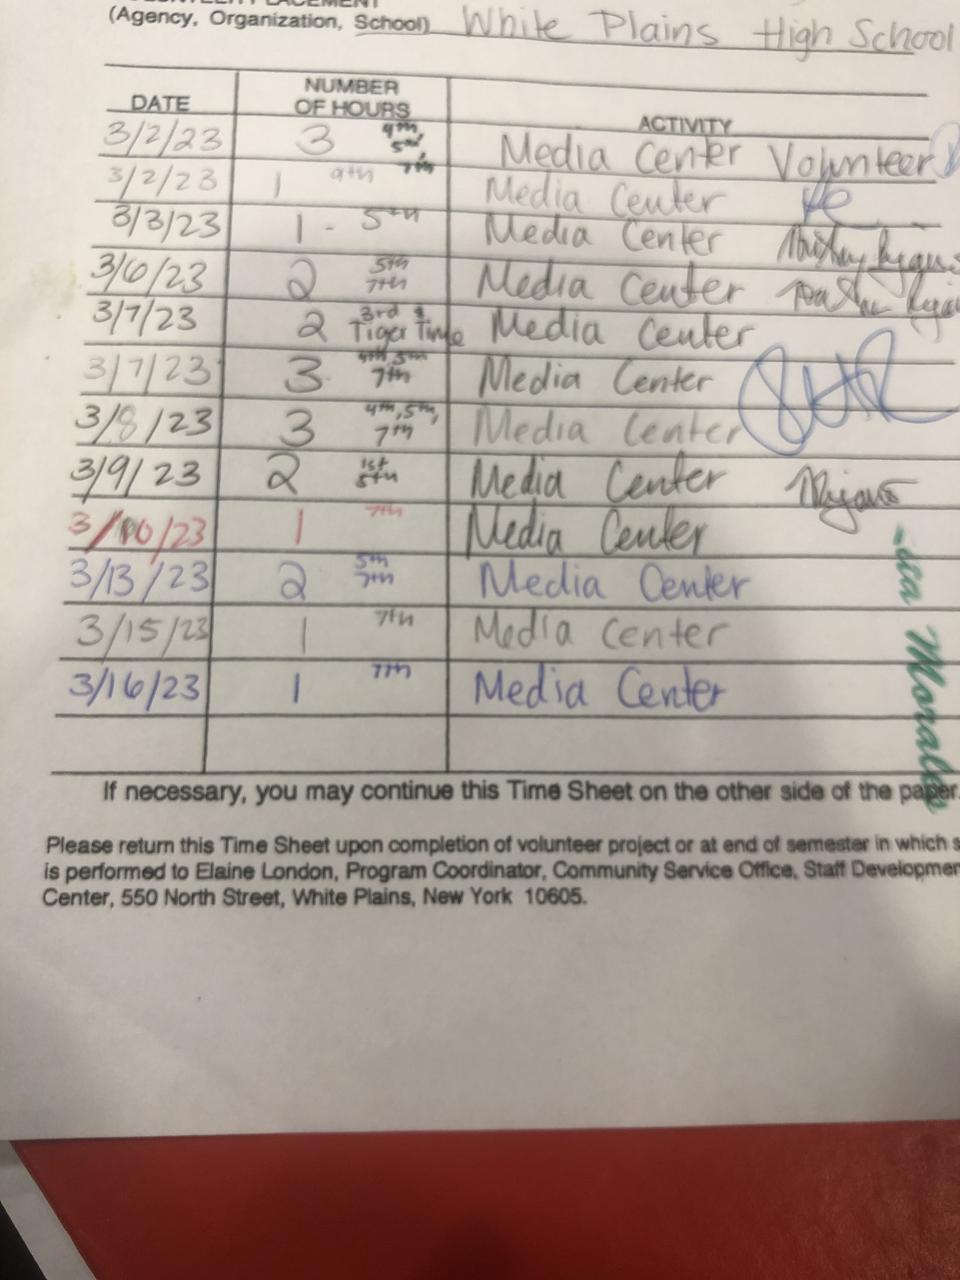 (Agency, Organization, School) White Plains High School
DATE NUMBER OF HOURS ACTIVITY
3/2/23 3 4th, 5th, 7th Media Center Volunteer
3/2/23 1 9th Media Center
3/3/23 1 - 5th Media Center
3/6/23 2 5th 7th Media Center
3/7/23 2 3rd & Tiger Time Media Center
3/7/23 3 4th 5th 7th Media Center
3/8/23 3 4th, 5th, 7th Media Center
3/9/23 2 1st 5th Media Center
3/10/23 1 7th Media Center
3/13/23 2 5th 7th Media Center
3/15/23 1 7th Media Center
3/16/23 1 7th Media Center
Morales
If necessary, you may continue this Time Sheet on the other side of the paper.
Please return this Time Sheet upon completion of volunteer project or at end of semester in which s
is performed to Elaine London, Program Coordinator, Community Service Office, Staff Developmen
Center, 550 North Street, White Plains, New York 10605.